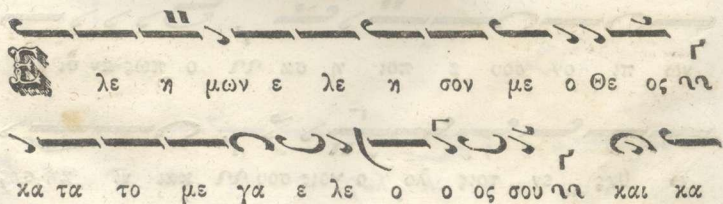 Ε λε η μων ε λε η σον με ο Θε ος
κα τα το με γα ε λε ο ο ος σου και κα